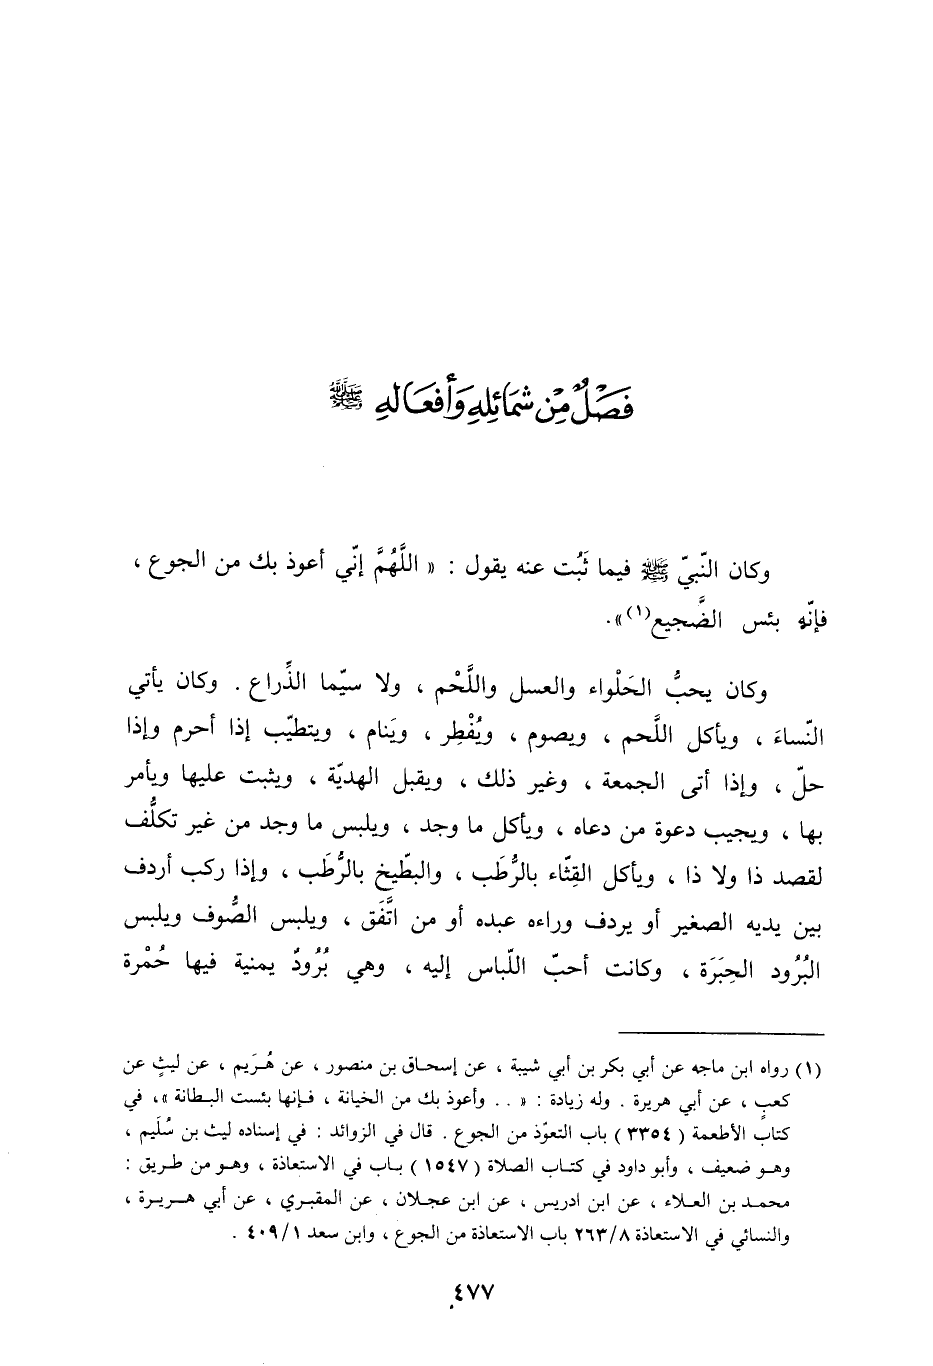 فَصْلٌ مِّنْ شَمَائِلِهِ وَأَفعَالهِ ﷺ
وكان النّبيّ ﷺ فيما ثَبُت عنه يقول : « اللَّهُمَّ إنّي أعوذ بك من الجوع ،
فإنّه بئس الضَّجيع(١)».
وكان يحبُّ الحَلْواء والعسل واللَّحْم ، ولا سيّما الذِّراع . وكان يأتي
النّساءَ ، ويأكل اللَّحم ، ويصوم ، ويُفْطِر ، ويَنام ، ويتطيّب إذا أحرم وإذا
حلّ ، وإذا أتى الجمعة ، وغير ذلك ، ويقبل الهديّة ، ويثبت عليها ويأمر
بها ، ويجيب دعوة من دعاه ، ويأكل ما وجد ، ويلبس ما وجد من غير تكلُّف
لقصد ذا ولا ذا ، ويأكل القِثّاء بالرُّطَب ، والبطّيخ بالرُّطَب ، وإذا ركب أردف
بين يديه الصغير أو يردف وراءه عبده أو من اتَّفَق ، ويلبس الصُّوف ويلبس
البُرُود الحِبَرَة ، وكانت أحبّ اللّباس إليه ، وهي بُرُودٌ يمنية فيها حُمْرة
(١) رواه ابن ماجه عن أبي بكر بن أبي شيبة ، عن إسحاق بن منصور ، عن هُرَيم ، عن ليثٍ عن
كعبٍ ، عن أبي هريرة . وله زيادة : « . . وأعوذ بك من الخيانة ، فإنها بئست البطانة »، في
كتاب الأطعمة ( ٣٣٥٤ ) باب التعوّذ من الجوع . قال في الزوائد : في إسناده ليث بن سُلَيم ،
وهو ضعيف ، وأبو داود في كتاب الصلاة ( ١٥٤٧ ) باب في الاستعاذة ، وهو من طريق :
محمد بن العلاء ، عن ابن ادريس ، عن ابن عجلان ، عن المقبري ، عن أبي هريرة ،
والنسائي في الاستعاذة ٢٦٣/٨ باب الاستعاذة من الجوع ، وابن سعد ٤٠٩/١ .
٤٧٧